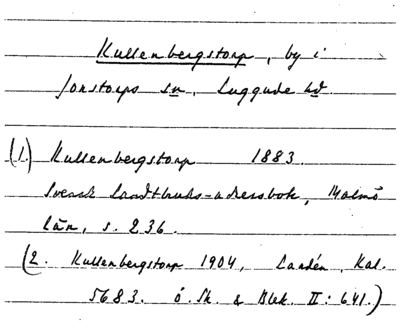 Kullenbergstorp, by i
Jonstorps sn, Luggude hd
(1.) Kullenbergstorp 1883.
Svensk Landtbruks-adressbok, Malmö
län, s. 236.
(2. Kullenbergstorp 1904, Landén, Kal.
5683. ö. Sk. & Blek. II: 641.)